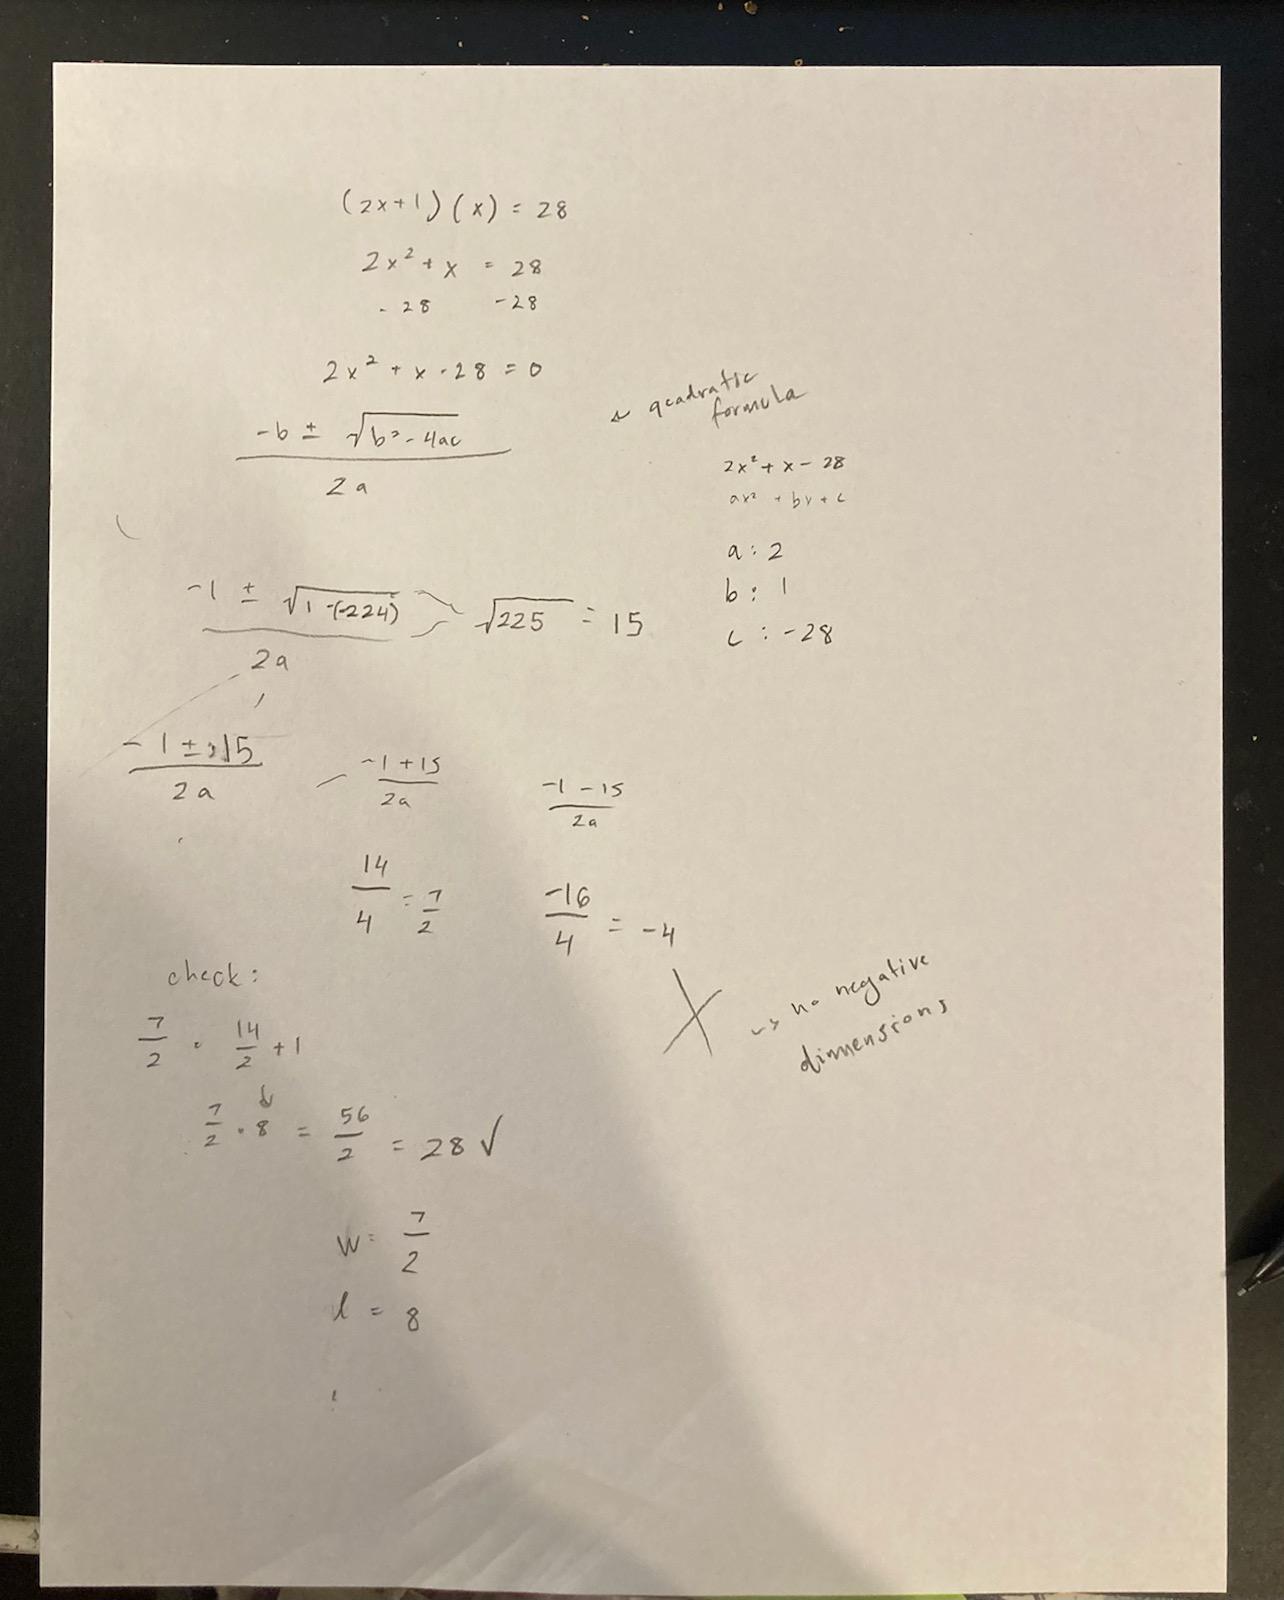 (2x+1)(x) = 28
2x² + x = 28
- 28 -28
2x² + x - 28 = 0
← quadratic
formula
-b ± √b² - 4ac
2a
2x² + x - 28
ax² + bx + c
a: 2
b: 1
c: -28
-1 ± √1-(-224)
2a
√225 = 15
-1 ± 15
2a
-1 + 15
2a
-1 - 15
2a
14
4
= 7
2
-16
4
= -4
X → no negative
dimensions
check:
7/2 · 14/2 + 1
↓
7/2 · 8 = 56/2 = 28 ✓
w = 7/2
l = 8